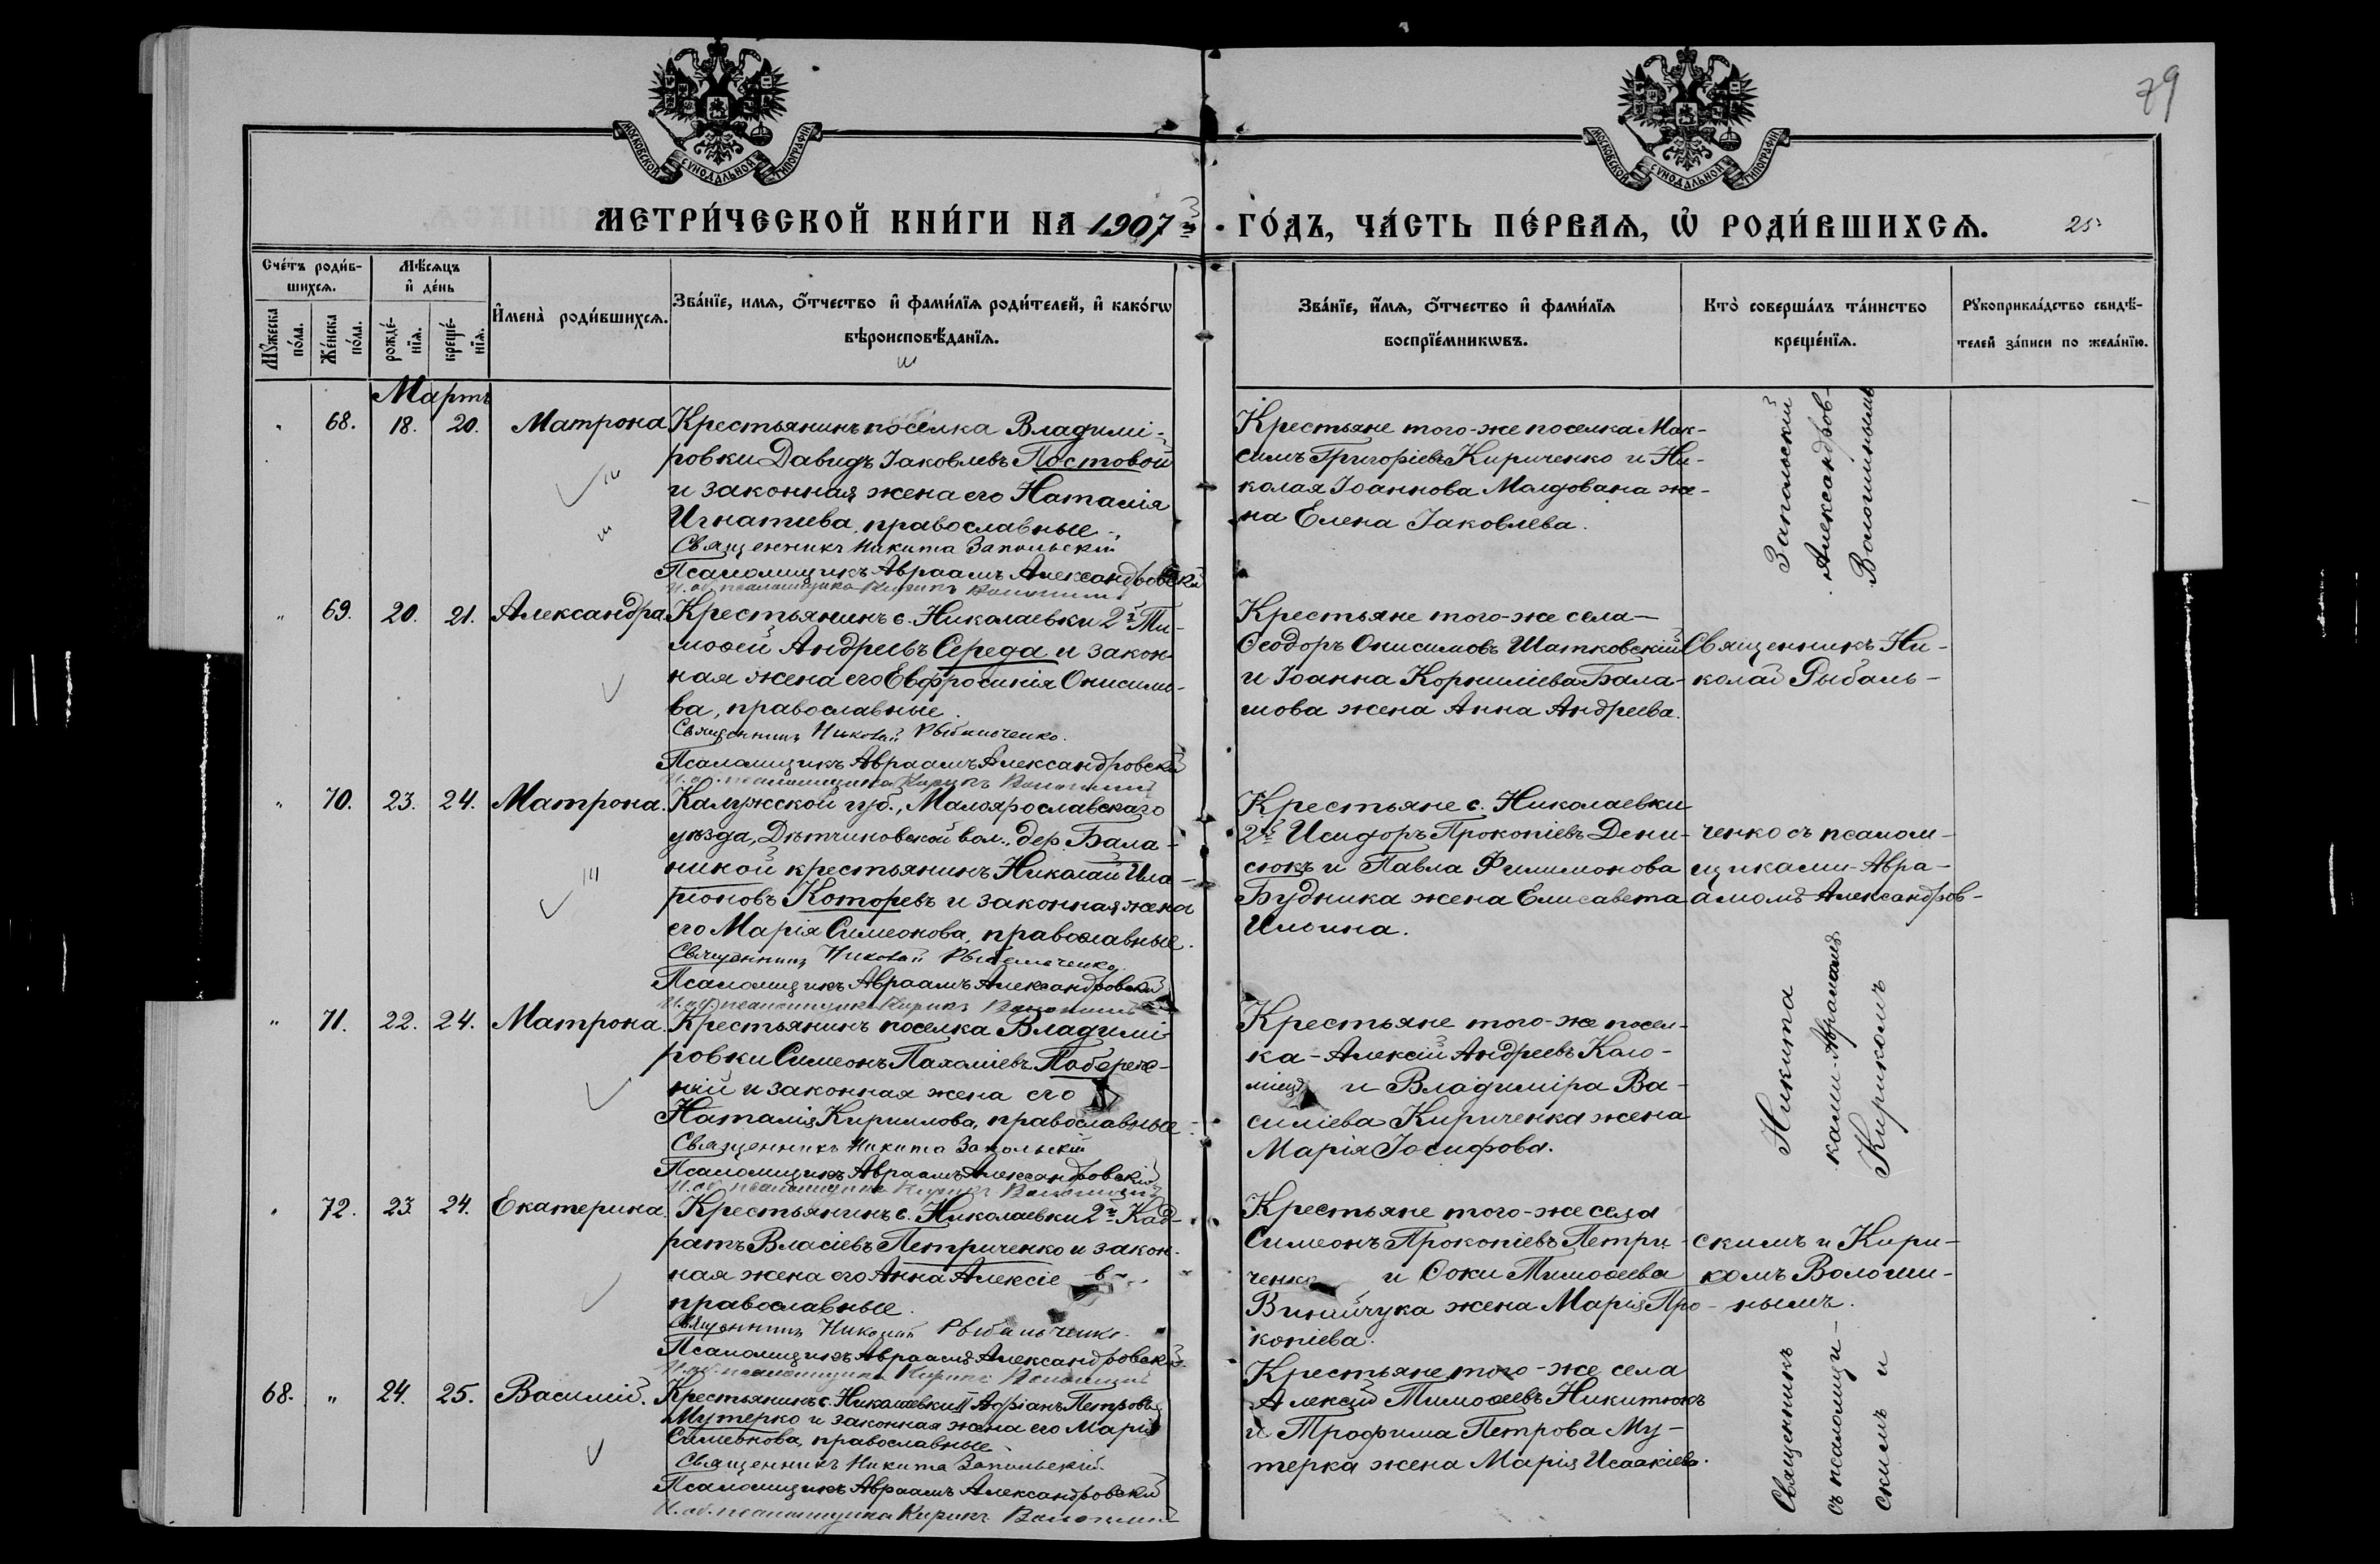 79
МОСКОВСКОЙ СѴНОДАЛЬНОЙ ТИПОГРАФІИ
МОСКОВСКОЙ СѴНОДАЛЬНОЙ ТИПОГРАФІИ
МЕТРИ́ЧЕСКОЙ КНИ́ГИ НА 1907й ГО́ДЪ, ЧА́СТЬ ПЕ́РВАѦ, Ѡ҆ РОДИ́ВШИХСѦ.
Сче́тъ роди́в-
шихсѧ.
Мꙋ́жеска
по́ла.
Же́нска
по́ла.
Мѣ́сѧцъ
и҆ де́нь
рожде́-
нїѧ.
креще́-
нїѧ.
И҆мена̀ роди́вшихсѧ.
Зва́нїе, имѧ, ѻ҆́тчество и҆ фами́лїѧ роди́телей, и҆ како́гѡ
вѣроисповѣ́данїѧ.
Зва́нїе, и҆́мѧ, ѻ҆́тчество и҆ фами́лїѧ
воспрїе́мникѡвъ.
Кто̀ соверша́лъ та́инство
креще́нїѧ.
Рꙋкоприкла́дство свидѣ́-
телей за́писи по жела́нїю.
Мартъ
" 68. 18. 20. Матрона
Крестьянинъ поселка Владимі-
ровки Давидъ Іаковлевъ Постовой
и законная жена его Наталія
Игнатиева, православные.
Священникъ Никита Запольскій
Псаломщикъ Авраамъ Александровскій
И. об. псаломщика Кирикъ Волошинъ
Крестьяне того-же поселка Мак-
симъ Григоріевъ Кириченко и Ни-
колая Іоаннова Молдована же-
на Елена Іаковлева.
" 69. 20. 21. Александра.
Крестьянинъ с. Николаевки 2й Ти-
моѳей Андреевъ Середа и закон-
ная жена его Евфросинія Онисимо-
ва, православные.
Священникъ Николай Рыбальченко.
Псаломщикъ Авраамъ Александровскій
И. об. псаломщика Кирикъ Волошинъ
Крестьяне того-же села-
Ѳеодоръ Онисимовъ Шатковскій
и Іоанна Корниліева Бала-
шова жена Анна Андреева.
" 70. 23. 24. Матрона.
Калужской губ., Малоярославскаго
уѣзда, Дѣтчиновской вол., дер. Бала-
никой крестьянинъ Николай Ила-
ріоновъ Которевъ и законная жена
его Марія Симеонова, православные.
Священникъ Николай Рыбальченко
Псаломщикъ Авраамъ Александровскій
И. об. псаломщика Кирикъ Волошинъ
Крестьяне с. Николаевки
2й Исидоръ Прокопіевъ Дени-
сюкъ и Павла Филимонова
Будника жена Елисавета
Ильина.
" 71. 22. 24. Матрона.
Крестьянинъ поселка Владимі-
ровки Симеонъ Паламіевъ Побереж-
ній и законная жена его
Наталія Кириллова, православные
Священникъ Никита Запольскій
Псаломщикъ Авраамъ Александровскій
И. об. псаломщика Кирикъ Волошинъ
Крестьяне того-же посел-
ка-Алексій Андреевъ Коло-
міецъ и Владиміра Ва-
силіева Кириченка жена
Марія Іосифова.
" 72. 23. 24. Екатерина.
Крестьянинъ с. Николаевки 2й Код-
ратъ Власіевъ Петриченко и закон-
ная жена его Анна Алексіев
православные.
Священникъ Николай Рыбальченко.
Псаломщикъ Авраамъ Александровскій
И. об. псаломщика Кирикъ Волошинъ
Крестьяне того-же села
Симеонъ Прокопіевъ Петри-
ченко и Ѳоки Тимоѳеева
Винийчука жена Марія Про-
копіева.
68. " 24. 25. Василій.
Крестьянинъ с. Николаевки II Адріанъ Петровъ
Мутерко и законная жена его Марія
Симеонова, православные
Священникъ Никита Запольскій.
Псаломщикъ Авраамъ Александровскій
И. об. псаломщика Кирикъ Волошинъ
Крестьяне того-же села
Алексій Тимоѳеевъ Никитюкъ
и Трофима Петрова Му-
терка жена Марія Исаакіева.
Священникъ Ни-
колай Рыбаль-
ченко съ псалом-
щиками-Авра-
амомъ Александров-
скимъ и Кири-
комъ Волоши-
нымъ.
Священникъ Никита Запольскій
съ псаломщи-ками-Авраамомъ Александров-
скимъ и Кирикомъ Волошинымъ